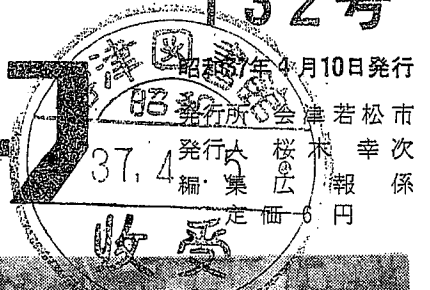 32号
昭和37年4月10日発行
発行所 会津若松市
発行人 桜木 幸次
編集 広報係
定価 6 円
津図書
昭和
37. 4. 5
収受